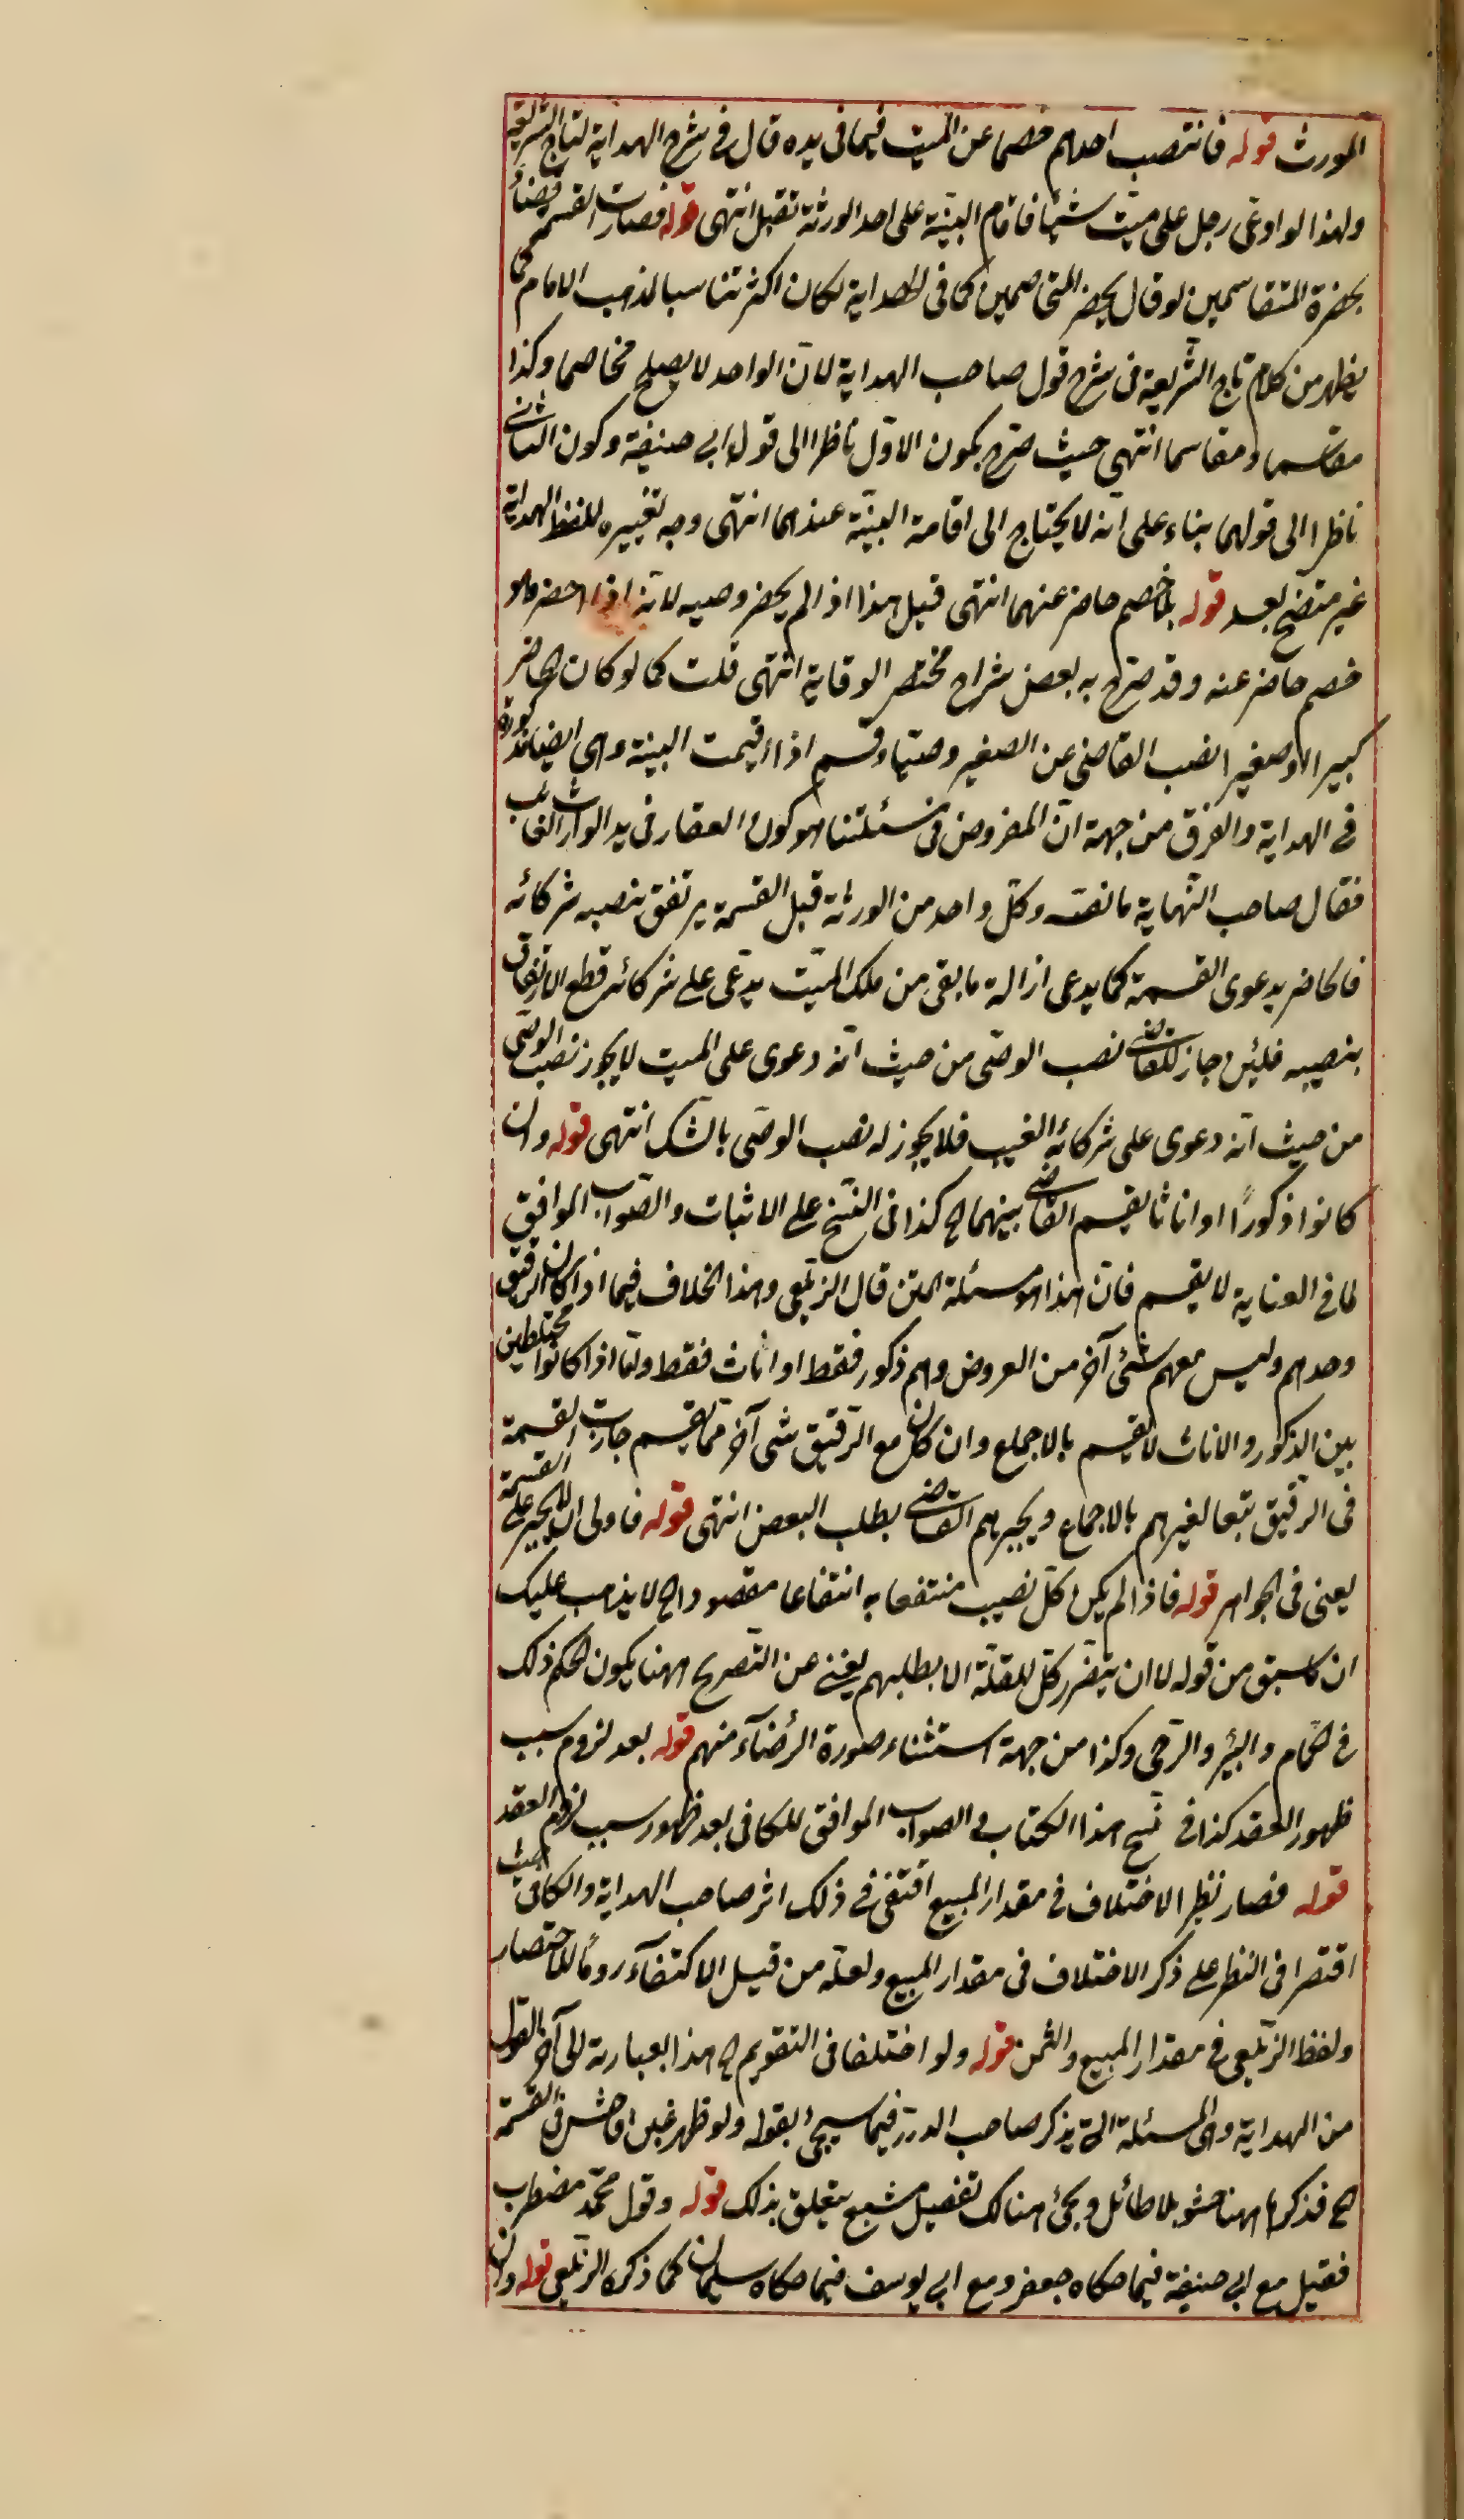 المورث قوله فانتصب احدهم خصما عن الميت فيما فى يده قال فى شرح الهداية لتاج الشريعة
ولهذا لو ادعى رجل على ميت شيئا فاقام البينة على احد الورثة تقبل انتهى قوله فصارت القسمة قضاء
بحضرة المتقاسمين لو قال بحضرة المتخاصمين كما فى الهداية لكان اكثر تناسبا لمذهب الامام كما
يظهر من كلام تاج الشريعة فى شرح قول صاحب الهداية لان الواحد لا يصلح مخاصما وكذا
مقاسما ومقاسما انتهى حيث صرح بكون الاول ناظرا الى قول ابى حنيفة وكون الثانى
ناظرا الى قولهما بناء على انه لا يحتاج الى اقامة البينة عندهما انتهى وجه تغييره للفظ الهداية
غير متضح بعد قوله بلا خصم حاضر عنهما انتهى قيل هذا اذا لم يحضر وصيه لانه اذا حضر فهو
خصم حاضر عنه وقد صرح به بعض شراح مختصر الوقاية انتهى قلت كما لو كان الحاضر
كبيرا او صغيرا نصب القاضى عن الصغير وصيا وقسم اذا اقيمت البينة وهى ايضا مذكورة
فى الهداية والفرق من جهة ان المفروض فى مسئلتنا هو كون العقار فى يد الوارث الغائب
فقال صاحب النهاية ما نصه وكل واحد من الورثة قبل القسمة يرتفق بنصيب شركائه
فالحاضر بدعوى القسمة كما يدعى ازالة ما بقى من ملك الميت يدعى على شركائه قطع الارتفاق
بنصيبه فلئن جاز للقاضى نصب الوصى من حيث انه دعوى على الميت لا يجوز نصب الوصى
من حيث انه دعوى على شركائه الغيب فلا يجوز له نصب الوصى بالشك انتهى قوله وان
كانوا ذكورا او اناثا يقسم القاضى بينهما الخ كذا فى النسخ على الاثبات والصواب الموافق
لما فى العناية لا يقسم فان هذا هو مسئلة المتن قال الزيلعى وهذا الخلاف فيما اذا كان الرقيق
وحدهم وليس معهم شئ آخر من العروض وهم ذكور فقط او اناث فقط واما اذا كانوا مختلطين
بين الذكور والاناث لا يقسم بالاجماع وان كان مع الرقيق شئ آخر مما يقسم جازت القسمة
فى الرقيق تبعا لغيرهم بالاجماع ويجبرهم القاضى بطلب البعض انتهى قوله فاولى ان لا يجبر على القسمة
يعنى فى الجواهر قوله فاذا لم يكن كل نصيب منتفعا به انتفاعا مقصودا الخ لا يذهب عليك
ان ما سبق من قوله لا ان يتضرر كل للقلة الا بطلبهم يغنى عن التصريح ههنا بكون الحكم ذلك
فى الحمام والبئر والرحى وكذا من جهة استثناء صورة الرضاء منهم قوله بعد لزوم سبب
ظهور العقد كذا فى نسخ هذا الكتاب والصواب الموافق للكافى بعد ظهور سبب لزوم العقد
قوله فصار نظير الاختلاف فى مقدار المبيع اقتفى فى ذلك اثر صاحب الهداية والكافى حيث
اقتصرا فى النظر على ذكر الاختلاف فى مقدار المبيع ولعله من قبيل الاكتفاء روما للاختصار
ولفظ الزيلعى فى مقدار المبيع والثمن قوله ولو اختلفا فى التقويم الخ هذا بعبارته الى آخر القول
من الهداية وهى المسئلة التى يذكر صاحب الدرر فيما سيجئ بقوله ولو ظهر غبن فاحش فى القسمة
الخ فذكرها ههنا حشو بلا طائل ويجئ هنالك تفصيل مشبع يتعلق بذلك قوله وقول محمد مضطرب
فقيل مع ابى حنيفة فيما حكاه جعفر ومع ابى يوسف فيما حكاه سليمان كما ذكره الزيلعى قوله وان